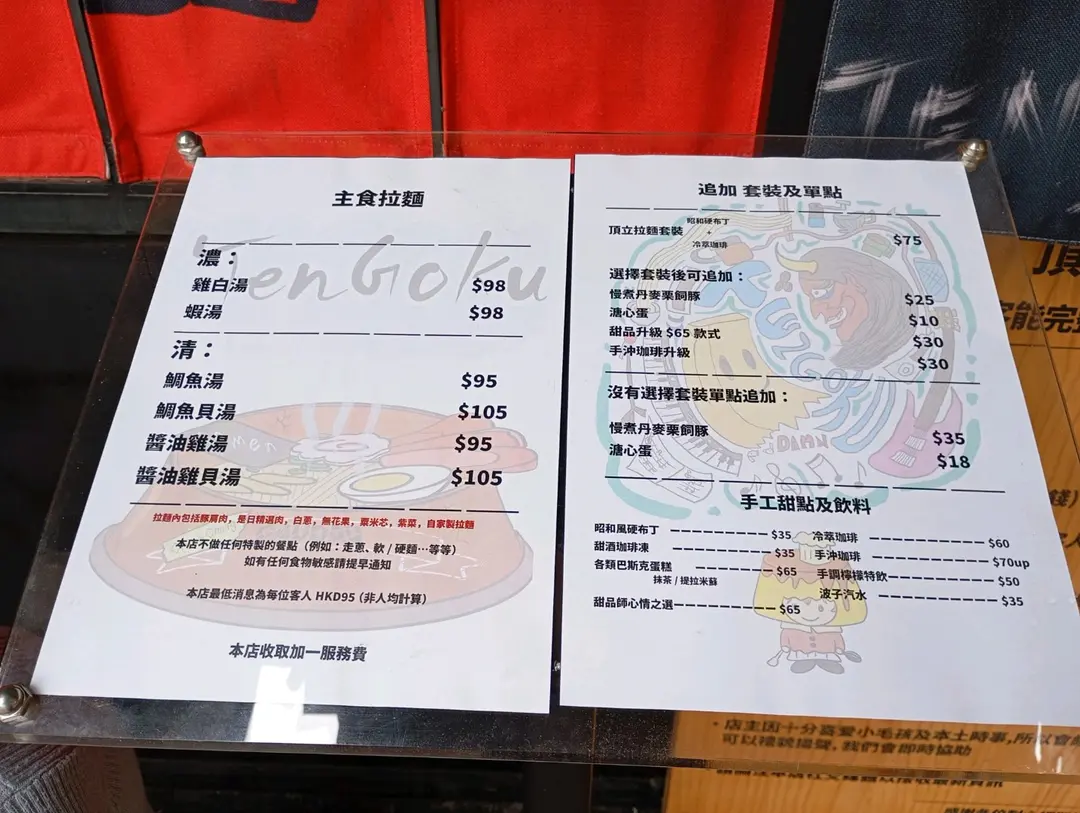 TEN
主食拉麵
TenGoku
濃：
雞白湯 $98
蝦湯 $98
清：
鯛魚湯 $95
鯛魚貝湯 $105
醬油雞湯 $95
醬油雞貝湯 $105
拉麵內包括豚肩肉，是日精選肉，白蔥，無花果，粟米芯，紫菜，自家製拉麵
本店不做任何特製的餐點（例如：走蔥、軟 / 硬麵…等等）
如有任何食物敏感請提早通知
本店最低消息為每位客人 HKD95 (非人均計算)
本店收取加一服務費
追加 套裝及單點
頂立拉麵套裝 昭和硬布丁 + 冷萃珈琲 $75
選擇套裝後可追加：
慢煮丹麥栗飼豚 $25
溏心蛋 $10
甜品升級 $65 款式 $30
手沖珈琲升級 $30
沒有選擇套裝單點追加：
慢煮丹麥栗飼豚 $35
溏心蛋 $18
手工甜點及飲料
昭和風硬布丁 $35 冷萃珈琲 $60
甜酒珈琲凍 $35 手沖珈琲 $70up
各類巴斯克蛋糕 $65 手調檸檬特飲 $50
抹茶 / 提拉米蘇 波子汽水 $35
甜品師心情之選 $65
頂
客能完整
錢)
人
・店主因十分喜愛小毛孩及本土時事，所以會
可以禮貌提醒，我們會即時協助